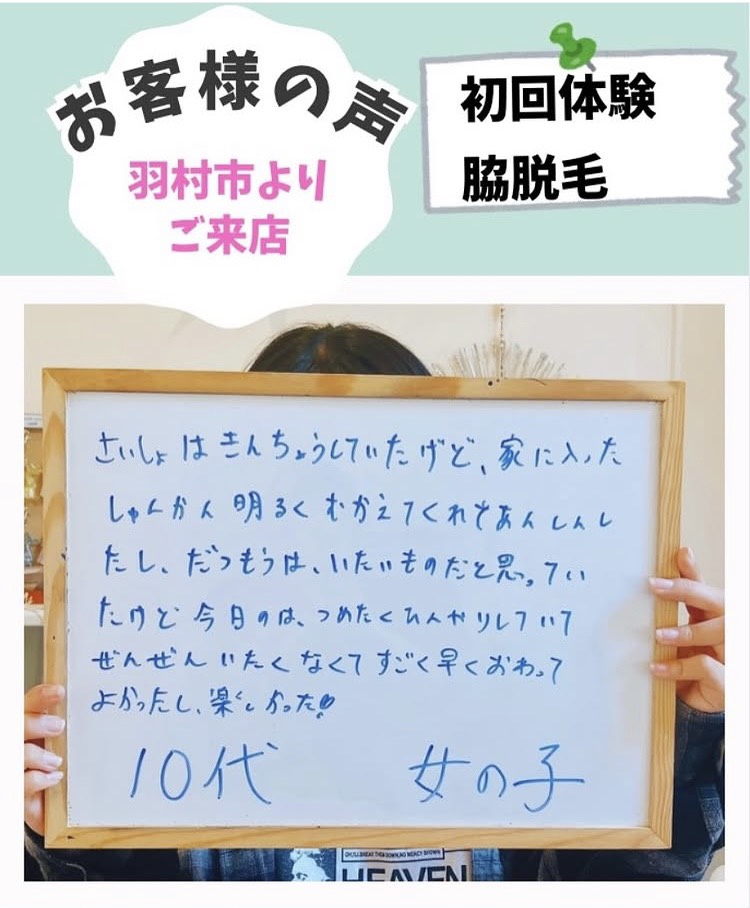 お客様の声
羽村市より
ご来店
初回体験
脇脱毛
さいしょはきんちょうしていたけど、家に入った
しゅんかん明るくむかえてくれてあんしんし
たし、だつもうは、いたいものだと思ってい
たけど今日のは、つめたくひんやりしていて
ぜんぜんいたくなくてすごく早くおわって
よかったし、楽しかった!
10代 女の子
HEAVEN